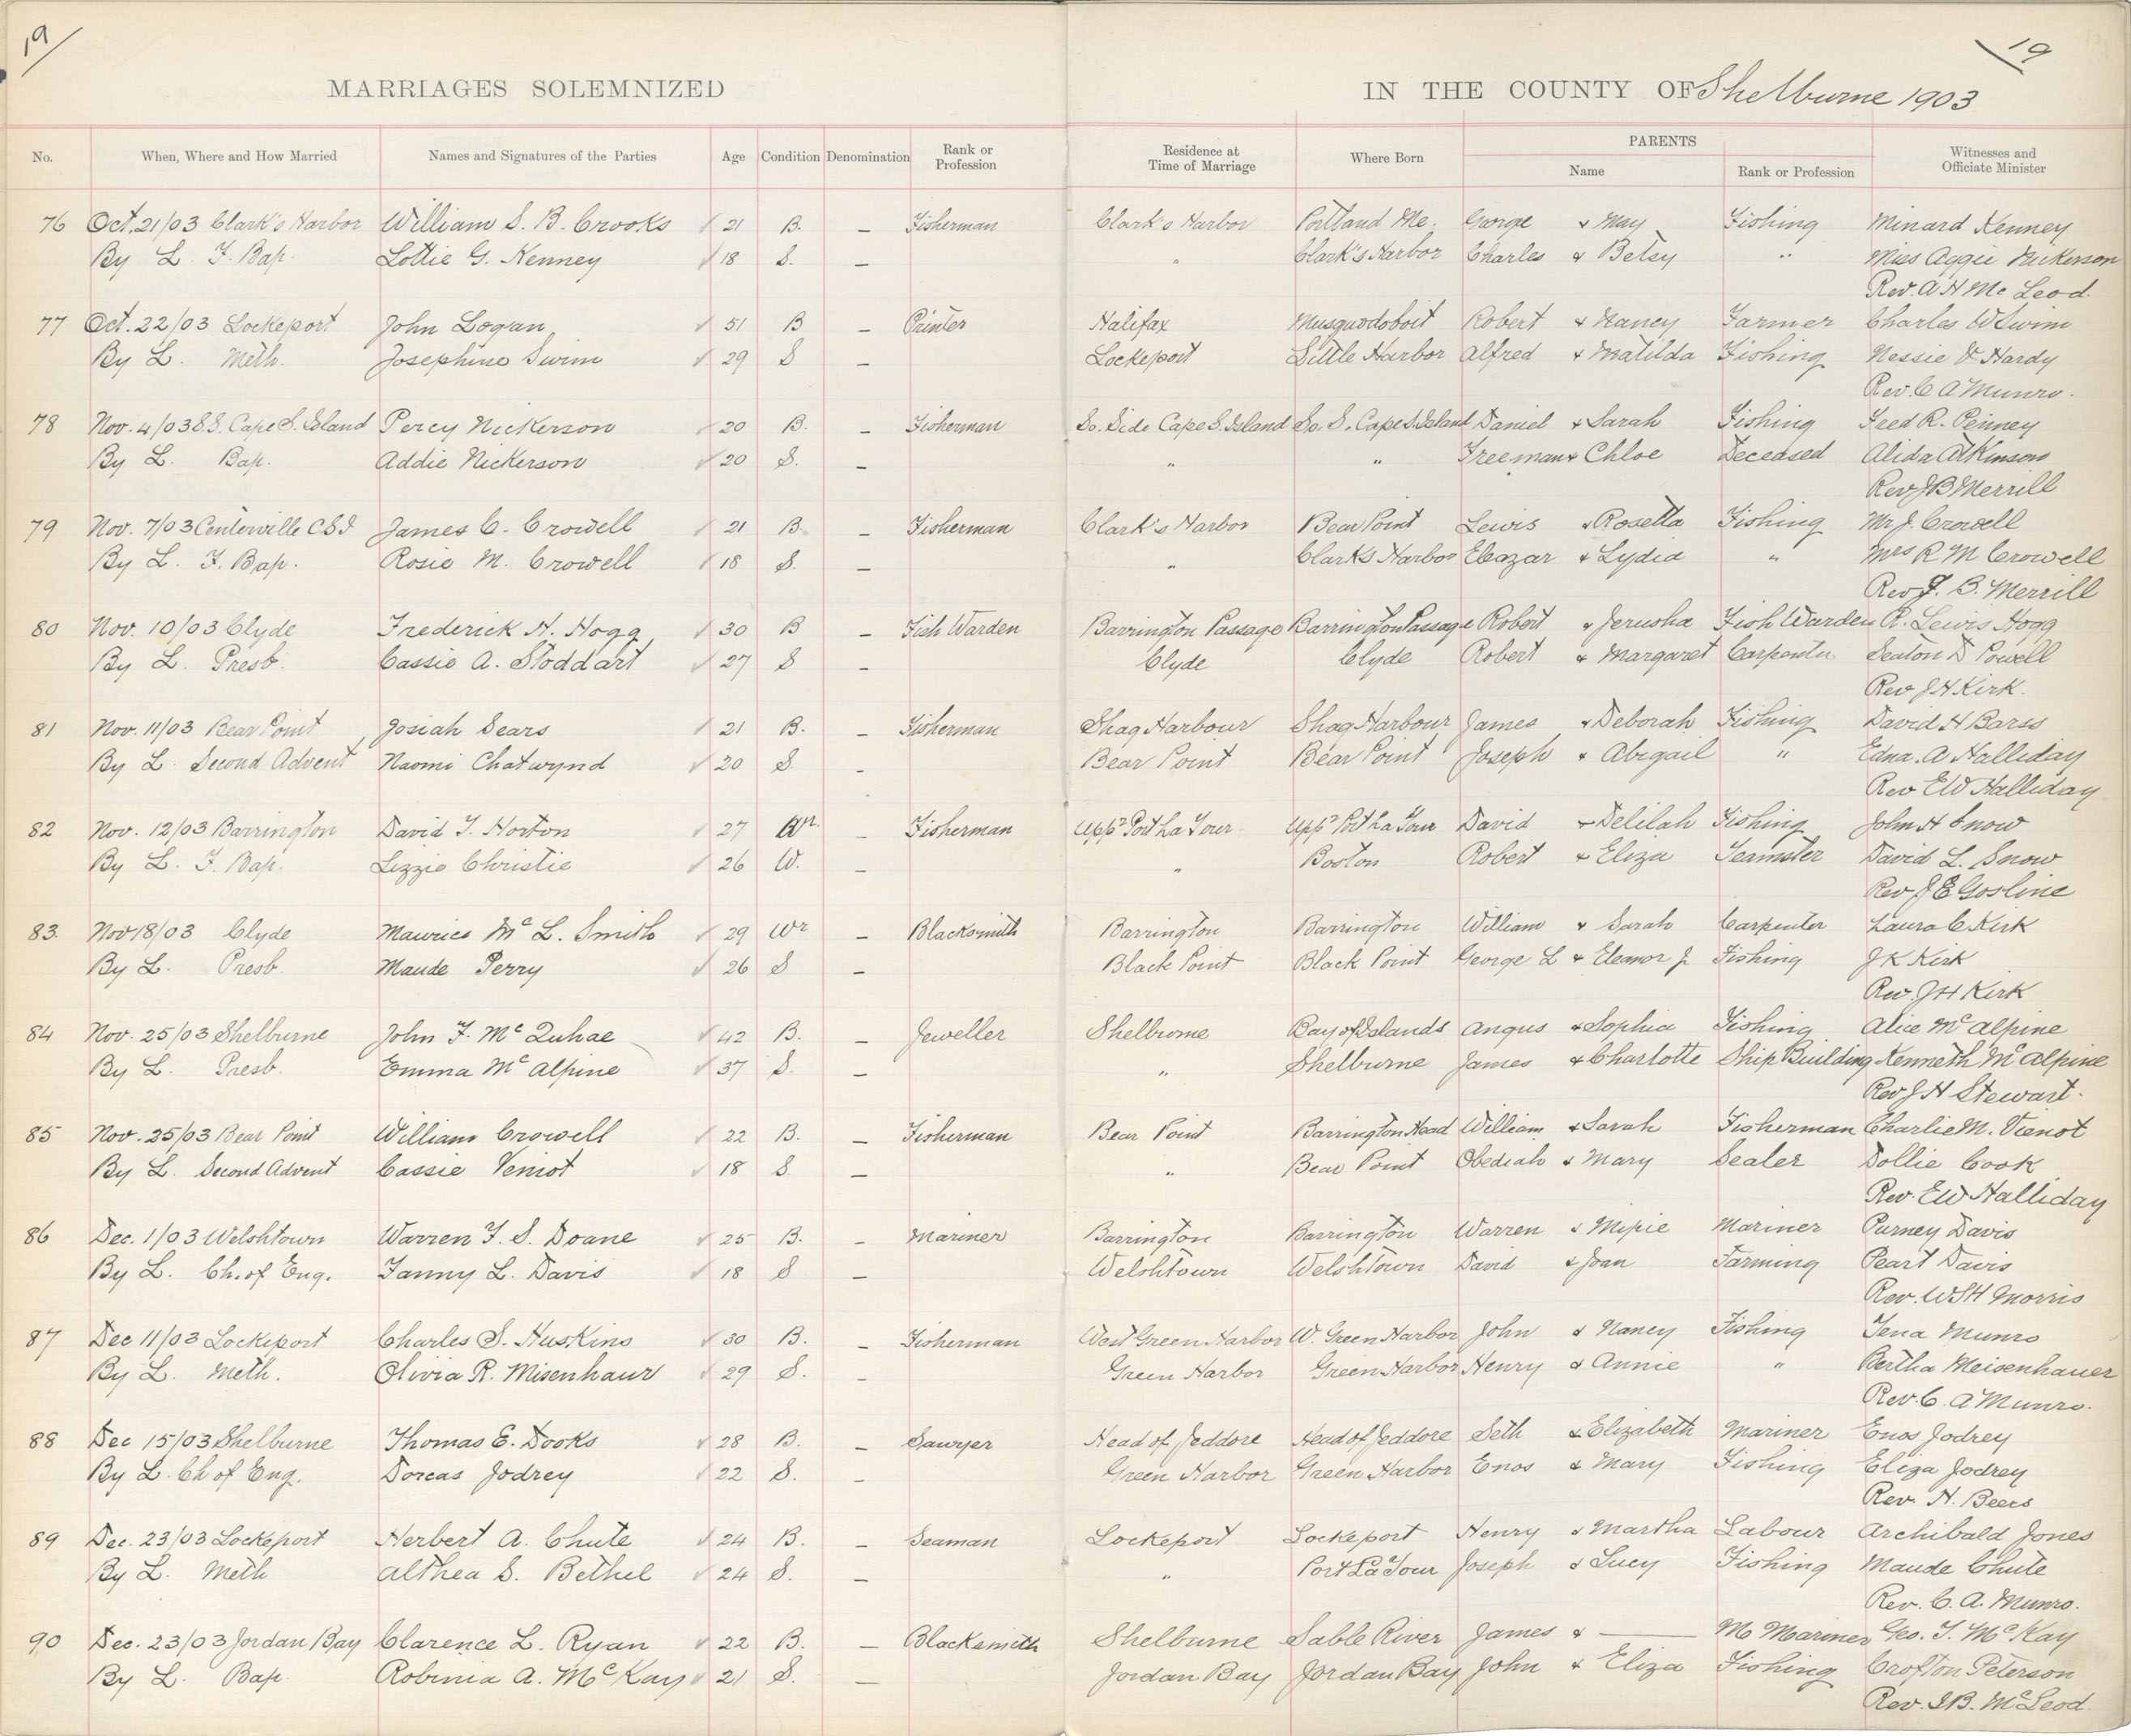 19 19
MARRIAGES SOLEMNIZED IN THE COUNTY OF Shelburne 1903
No. When, Where and How Married Names and Signatures of the Parties Age Condition Denomination Rank or Profession Residence at Time of Marriage Where Born PARENTS Name Rank or Profession Witnesses and Officiate Minister
76 Oct. 21/03 Clark's Harbor William S. B. Crooks 21 B. – Fisherman Clark's Harbor Portland Me. George & May Fishing Minard Kenney
By L. F. Bap. Lottie G. Kenney 18 S. – " Clark's Harbor Charles & Betsy " Miss Aggie Nickerson
Rev. A H Mc Leod.
77 Oct. 22/03 Lockeport John Logan 51 B – Printer Halifax Musquodoboit Robert & Nancy Farmer Charles W Swim
By L. Meth. Josephine Swim 29 S – Lockeport Little Harbor Alfred & Matilda Fishing Nessie V Hardy
Rev. C A Munro.
78 Nov. 4/03 S.S. Cape S. Island Percy Nickerson 20 B. – Fisherman So. Side Cape S. Island So. S. Cape S Island Daniel & Sarah Fishing Fred R. Penney
By L. Bap. Addie Nickerson 20 S. – " " Freeman & Chloe Deceased Alida Atkinson
Rev J B Merrill
79 Nov. 7/03 Centerville C S I James C. Crowell 21 B. – Fisherman Clark's Harbor Bear Point Lewis & Rosetta Fishing Mr J. Crowell
By L. F. Bap. Rosie M. Crowell 18 S. – " Clarks Harbor Eleazar & Lydia " Mrs R M Crowell
Rev J. B. Merrill
80 Nov. 10/03 Clyde Frederick H. Hogg 30 B – Fish Warden Barrington Passage Barrington Passage Robert & Jerusha Fish Warden R. Lewis Hogg
By L. Presb. Cassie A. Stoddart 27 S – Clyde Clyde Robert & Margaret Carpenter Seaton D Powell
Rev J H Kirk.
81 Nov. 11/03 Bear Point Josiah Sears 21 B. – Fisherman Shag Harbour Shag Harbour James & Deborah Fishing David H Barss
By L. Second Advent Naomi Chatwynd 20 S. – Bear Point Bear Point Joseph & Abigail " Edna. A Halliday
Rev E W Halliday
82 Nov. 12/03 Barrington David T. Horton 27 Wr. – Fisherman Uppr Port La Tour Uppr Port La Tour David & Delilah Fishing John H Snow
By L. F. Bap. Lizzie Christie 26 W. – " Boston Robert & Eliza Teamster David L. Snow
Rev J E Gosline
83. Nov 18/03 Clyde Maurice Mc L. Smith 29 Wr – Blacksmith Barrington Barrington William & Sarah Carpenter Laura C Kirk
By L. Presb. Maude Perry 26 S – Black Point Black Point George L & Eleanor J. Fishing J K Kirk
Rev. J H Kirk
84 Nov. 25/03 Shelburne John F. Mc Quhae 42 B. – Jeweller Shelburne Bay of Islands Angus & Sophia Fishing Alice Mc Alpine
By L. Presb. Emma Mc Alpine 37 S. – " Shelburne James & Charlotte Ship Building Kenneth Mc Alpine
Rev J H Stewart.
85 Nov. 25/03 Bear Point William Crowell 22 B. – Fisherman Bear Point Barrington Head William & Sarah Fisherman Charlie M. Vienot
By L. Second Advent Cassie Veniot 18 S. – " Bear Point Obediah & Mary Sealer Dollie Cook
Rev. E W Halliday
86 Dec. 1/03 Welshtown Warren F. S. Doane 25 B. – Mariner Barrington Barrington Warren & Mipie Mariner Purney Davis
By L. Ch. of Eng. Fanny L. Davis 18 S – Welshtown Welshtown David & Joan Farming Pearl Davis
Rev. W S H Morris
87 Dec 11/03 Lockeport Charles S. Huskins 30 B. – Fisherman West Green Harbor W. Green Harbor John & Nancy Fishing Tena Munro
By L. Meth. Olivia R. Misenhaur 29 S. – Green Harbor Green Harbor Henry & Annie " Bertha Meisenhauer
Rev. C. A Munro.
88 Dec 15/03 Shelburne Thomas E. Dooks 28 B. – Sawyer Head of Jeddore Head of Jeddore Seth & Elizabeth Mariner Enos Jodrey
By L. Ch of Eng. Dorcas Jodrey 22 S. – Green Harbor Green Harbor Enos & Mary Fishing Eliza Jodrey
Rev. H. Beers
89 Dec. 23/03 Lockeport Herbert A. Chute 24 B. – Seaman Lockeport Lockeport Henry & Martha Labour Archibald Jones
By L. Meth Althea S. Bethel 24 S. – " Port La Tour Joseph & Lucy Fishing Maude Chute
Rev. C. A. Munro.
90 Dec. 23/03 Jordan Bay Clarence L. Ryan 22 B. – Blacksmith Shelburne Sable River James & — M Mariner Geo. T. Mc Kay
By L. Bap. Robinia A. Mc Kay 21 S. – Jordan Bay Jordan Bay John & Eliza Fishing Crofton Peterson
Rev. I B. Mc Leod.